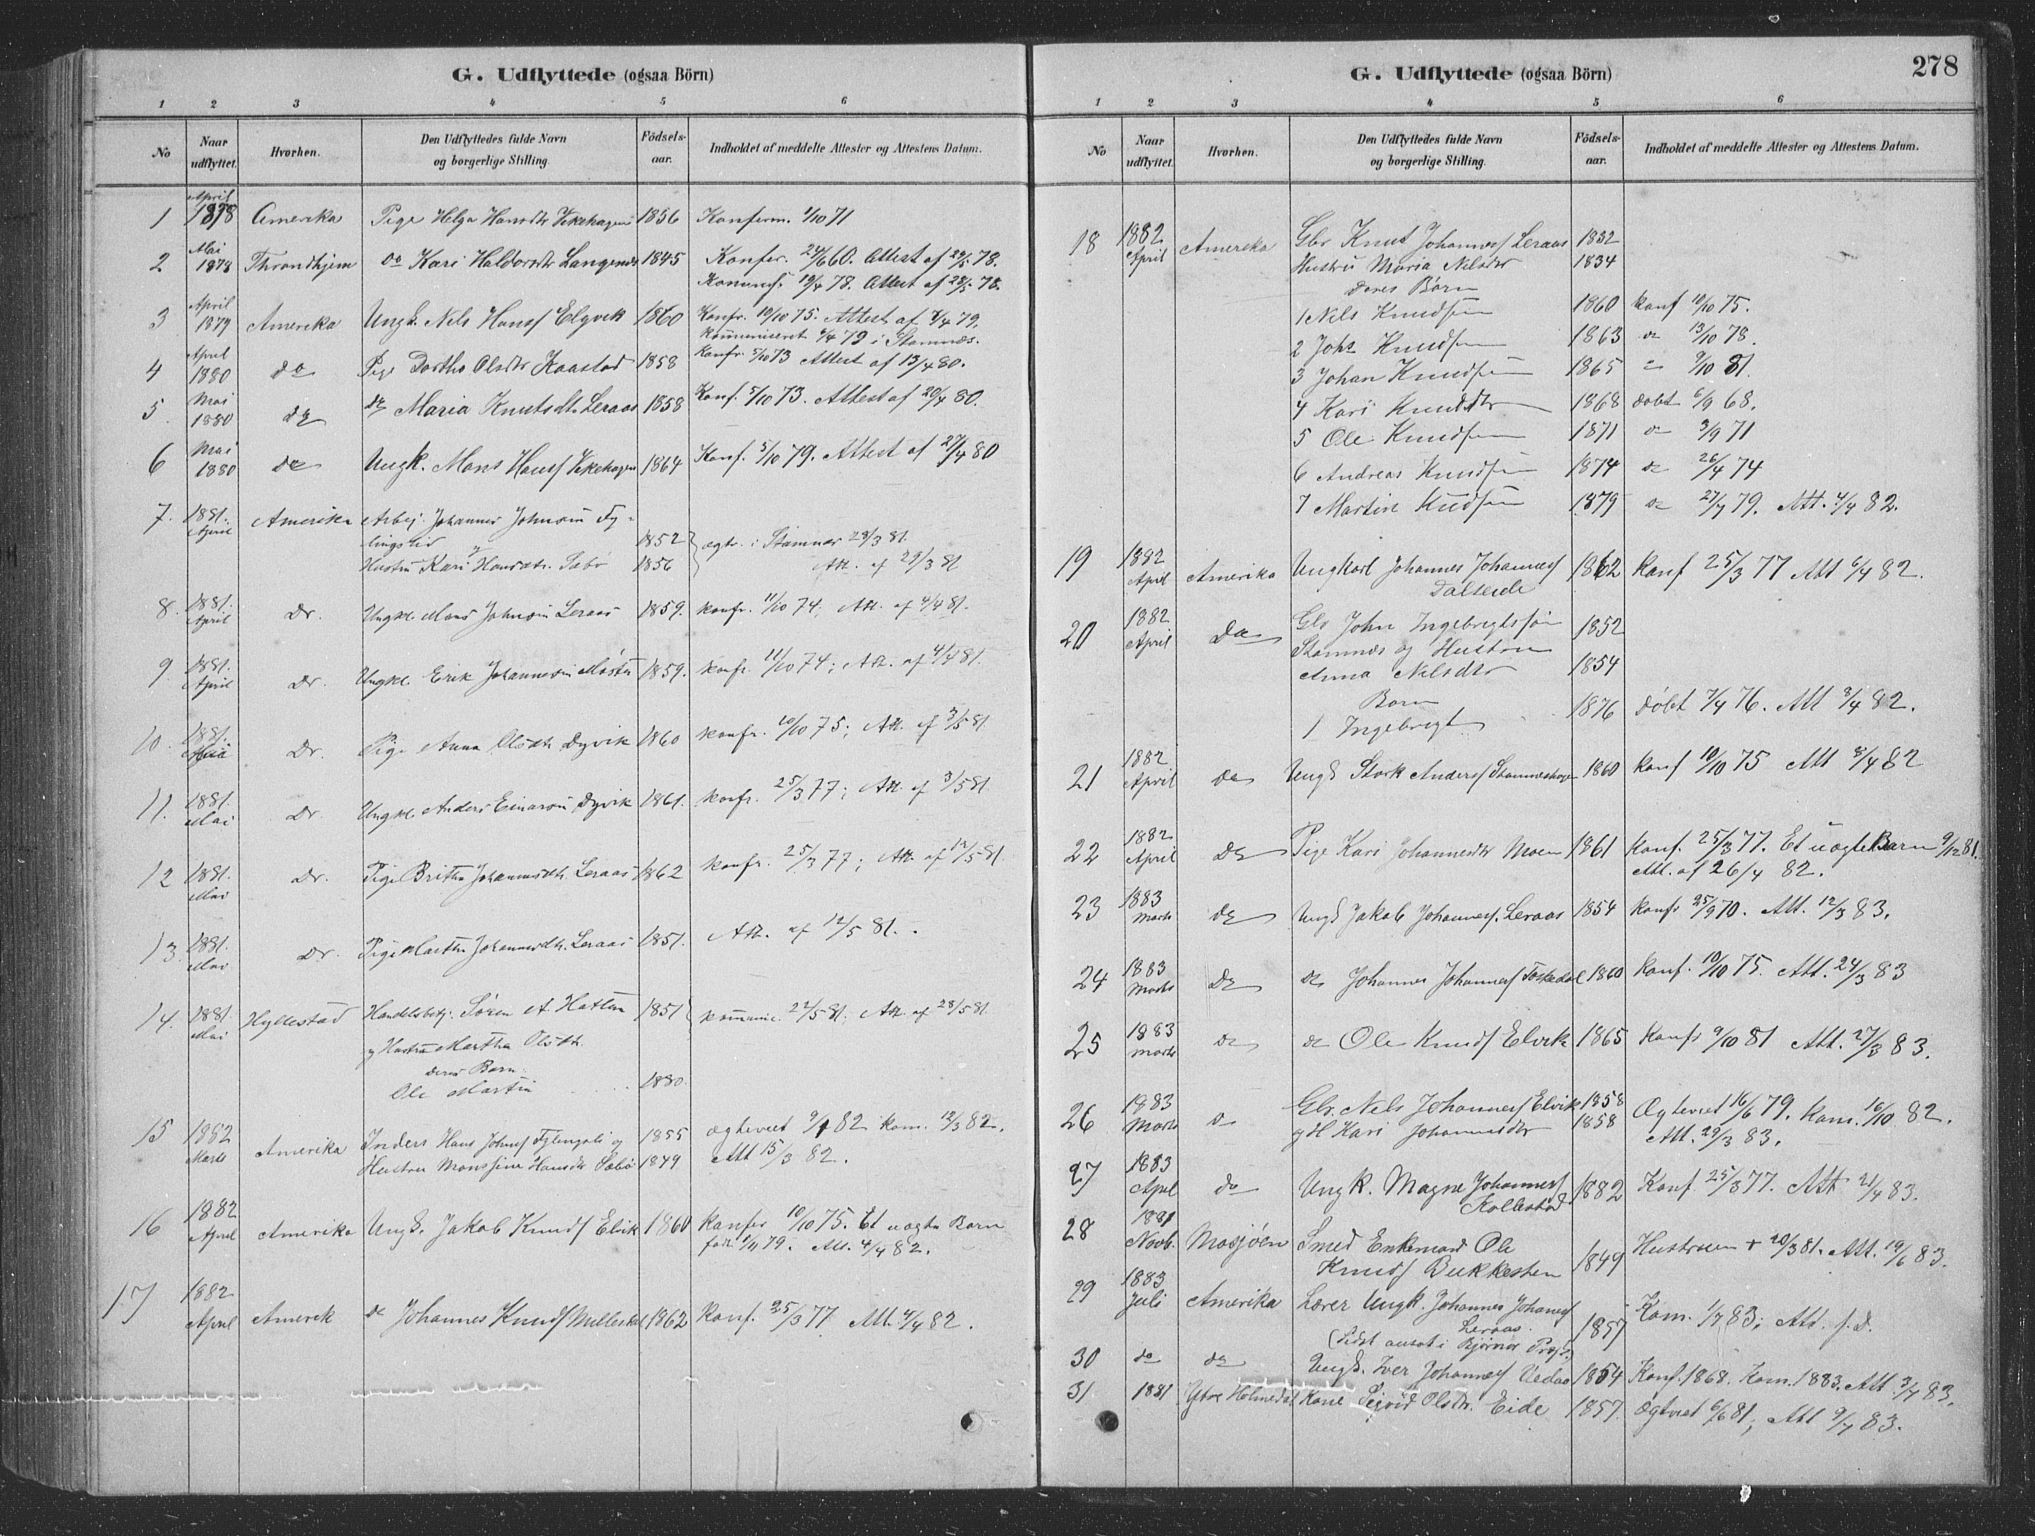 G. Udflyttede (ogsaa Börn)
1 2 3 4 5 6
No
Naar udflyttet.
Hvorhen.
Den Udflyttedes fulde Navn og borgerlige Stilling.
Födsels-aar.
Indholdet af meddelte Attester og Attestens Datum.
1 April 1878 Amerika Pige Helga Hansdtr 1856 Konferm. 1/10 71
2 Mai 1878 Throndhjem do Kari Haldorsdtr Langenes 1845 Konfer. 24/6 60. Attest af 78.
78. Attest af 78.
3 April 1879 Amerika Ungk. Nels Hansf Elgvik 1860 Konfr. 10/10 75. Attest af 4/4 79.
kommuniceret 79 i Stamnæs.
4 April 1880 do Pige Dortho Olsdtr Kaastad 1858 Konfr. 5/10 73 Attest af 13/4 80.
5 Mai 1880 do do Maria Knutsdtr Leraas 1858 Konf. 5/10 73. Attest af 29/4 80.
6 Mai 1880 do Ungk. Mons Hansf 1864 Konf. 5/10 79. Attest af 27/4 80
7. 1881. April Amerika Arbej. Johannes Johnsøn Fy-
lingslid 1852
Hustru Kari Hansdtr. Sæbø 1856
ægtv. i Stamnæs 28/3 81.
Att. af 29/3 81
8. 1881. April Do. Ungkl. Mons Johnsøn Leraas 1859. konfr. 11/10 74. Att. af 4/4 81.
9 1881. April Do. Ungkl. Erik Johannesøn 1859. konfr. 11/10 74; Att. af 4/4 81.
10. 1881. Mai Do. Pige Anna Olsdtr. Dyvik 1860 konfr. 10/10 75; Att. af 3/5 81
11. 1881. Mai Do. Ungkl. Anders Einarsøn Dyvik 1861. konfr. 25/3 77; Att. af 3/5 81
12 1881. Mai Do. Pige Britha Johannesdtr. Leraas 1862 konfr. 25/3 77; Att. af 12/5 81.
13. 1881. Mai Do. Pige Martha Johannesdtr. Leraas 1851. Att. af 12/5 81.
14. 1881. Mai Hyllestad Handelsbetj. Søren A. Hatlem 1851 kommunic. 22/5 81. Att. af 28/5 81.
og Hustru Martha Olsdtr.
deres Barn.
Ole Martin 1880.
15 1882 Marts Amerika Inders Hans Johnsf Fylingsli og 1855 Ægteviet 9/1 82 kom. 12/3 82.
Hustru Monssine Hansdtr Sæbø 1849 Att 15/3 82.
16 1882 April Amerika Ungk. Jakob Knudsf Elvik 1860 konfer 10/10 75. Et uægte Barn
født 79. Att. 4/4 82.
17 1882 April Amerik do Johannes Knudsf 1862 konf. 25/3 77. Att. 4/4 82.
G. Udflyttede (ogsaa Börn)
278
1 2 3 4 5 6
No
Naar udflyttet.
Hvorhen.
Den Udflyttedes fulde Navn og borgerlige Stilling.
Födsels-aar.
Indholdet af meddelte Attester og Attestens Datum.
18 1882 April Amerika Gbr Knut Johannesf Leraas 1832
Hustru Maria Nilsdtr 1834
deres Børn
1 Nils Knudsøn 1860 konf 10/10 75.
2 Joh Knudsøn 1863 do 13/10 78.
3 Johan Knudsøn 1865 do 9/10 81.
4 Kari Knudsdtr 1868 døbt 6/9 68.
5 Ole Knudsøn 1871 do 3/9 71
6 Andreas Knudsøn 1874 do 26/4 74
7 Martin Kudsøn 1879 do 27/4 79. Att. 4/4 82.
19 1882 April Amerika Ungkarl Johannes Johannesf 1862 konf 25/3 77 Att 6/4 82.
Dalseide
20 1882 April do Gbr John Ingebrigtsøn 1852
Stamnæs og Hustru
Anna Nilsdtr 1854
Barn
1 Ingebrigt 1876 døbt 7/4 76. Att 8/4 82.
21 1882 April do Ungk Stork Andersf Stamneshagen 1860 konf 10/10 75 Att 8/4 82
22 1882 April do Pige Kari Johannesdtr Moen 1861 konf. 25/3 77. Et uægte Barn 9/12 81.
Att. af 26/4 82.
23 1883 Marts do Ungk Jakob Johannesf. Leraas 1854 konfr 25/9 70. Att. 12/3 83.
24 1883 Marts do do Johannes Johannesf 1860 konf. 10/10 75. Att. 24/3 83
25 1883 Marts do do Ole Knudsf Elvik 1865 konfr 9/10 81 Att. 27/3 83.
26 1883 Marts do Gbr. Nils Johannesf Elvik 1858 Ægteviet 16/6 79. kom. 16/10 82.
og H Kari Johannesdtr 1858 Att. 29/3 83.
27 1883 April do Ungk. Magne Johannesf 1882 Konf. 25/3 77. Att 21/4 83.
28 1881 Novb. Mosjøen Smed Enkemand Ole
Knudsf Bukkesten 1849 Hustruen + 20/3 81. Att. 19/6 83.
29 1883 Juli Amerika Lærer Ungk. Johannes Johannesf
Leraas. 1857 Kom. 1/7 83; Att. s. D.
(Sidst ansat i Bjørnør Præstg.)
30 do do Ungk. Iver Johannesf Vedaa 1854 Konf. 1868. Kom. 1883. Att 3/7 83.
31 1881 Ytre Holmedal Kone Olsdtr. Eide 1857. Ægteviet 6/6 81, Att 9/7 83.